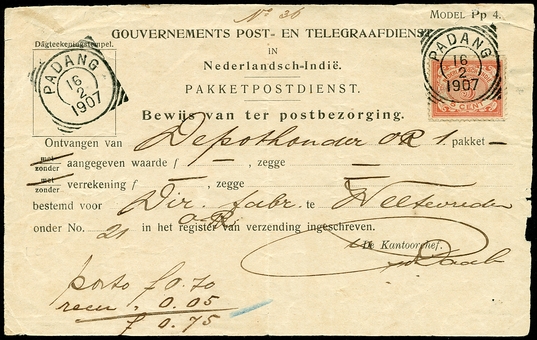 No 36
MODEL Pp 4.
GOUVERNEMENTS POST- EN TELEGRAAFDIENST
Dagteekeningstempel.
IN
Nederlandsch-Indië.
PAKKETPOSTDIENST.
Bewijs van ter postbezorging.
PADANG
16
2
1907
PADANG
16
2
1907
CENT
Ontvangen van Depothouder OR 1. pakket —
met
zonder aangegeven waarde f — , zegge —
met
zonder verrekening f — , zegge —
bestemd voor Dir. fabr. te Weltevreden
onder No. 21 in het register van verzending ingeschreven.
De Kantoorchef.
porto f 0.70
recu " 0.05
f 0.75